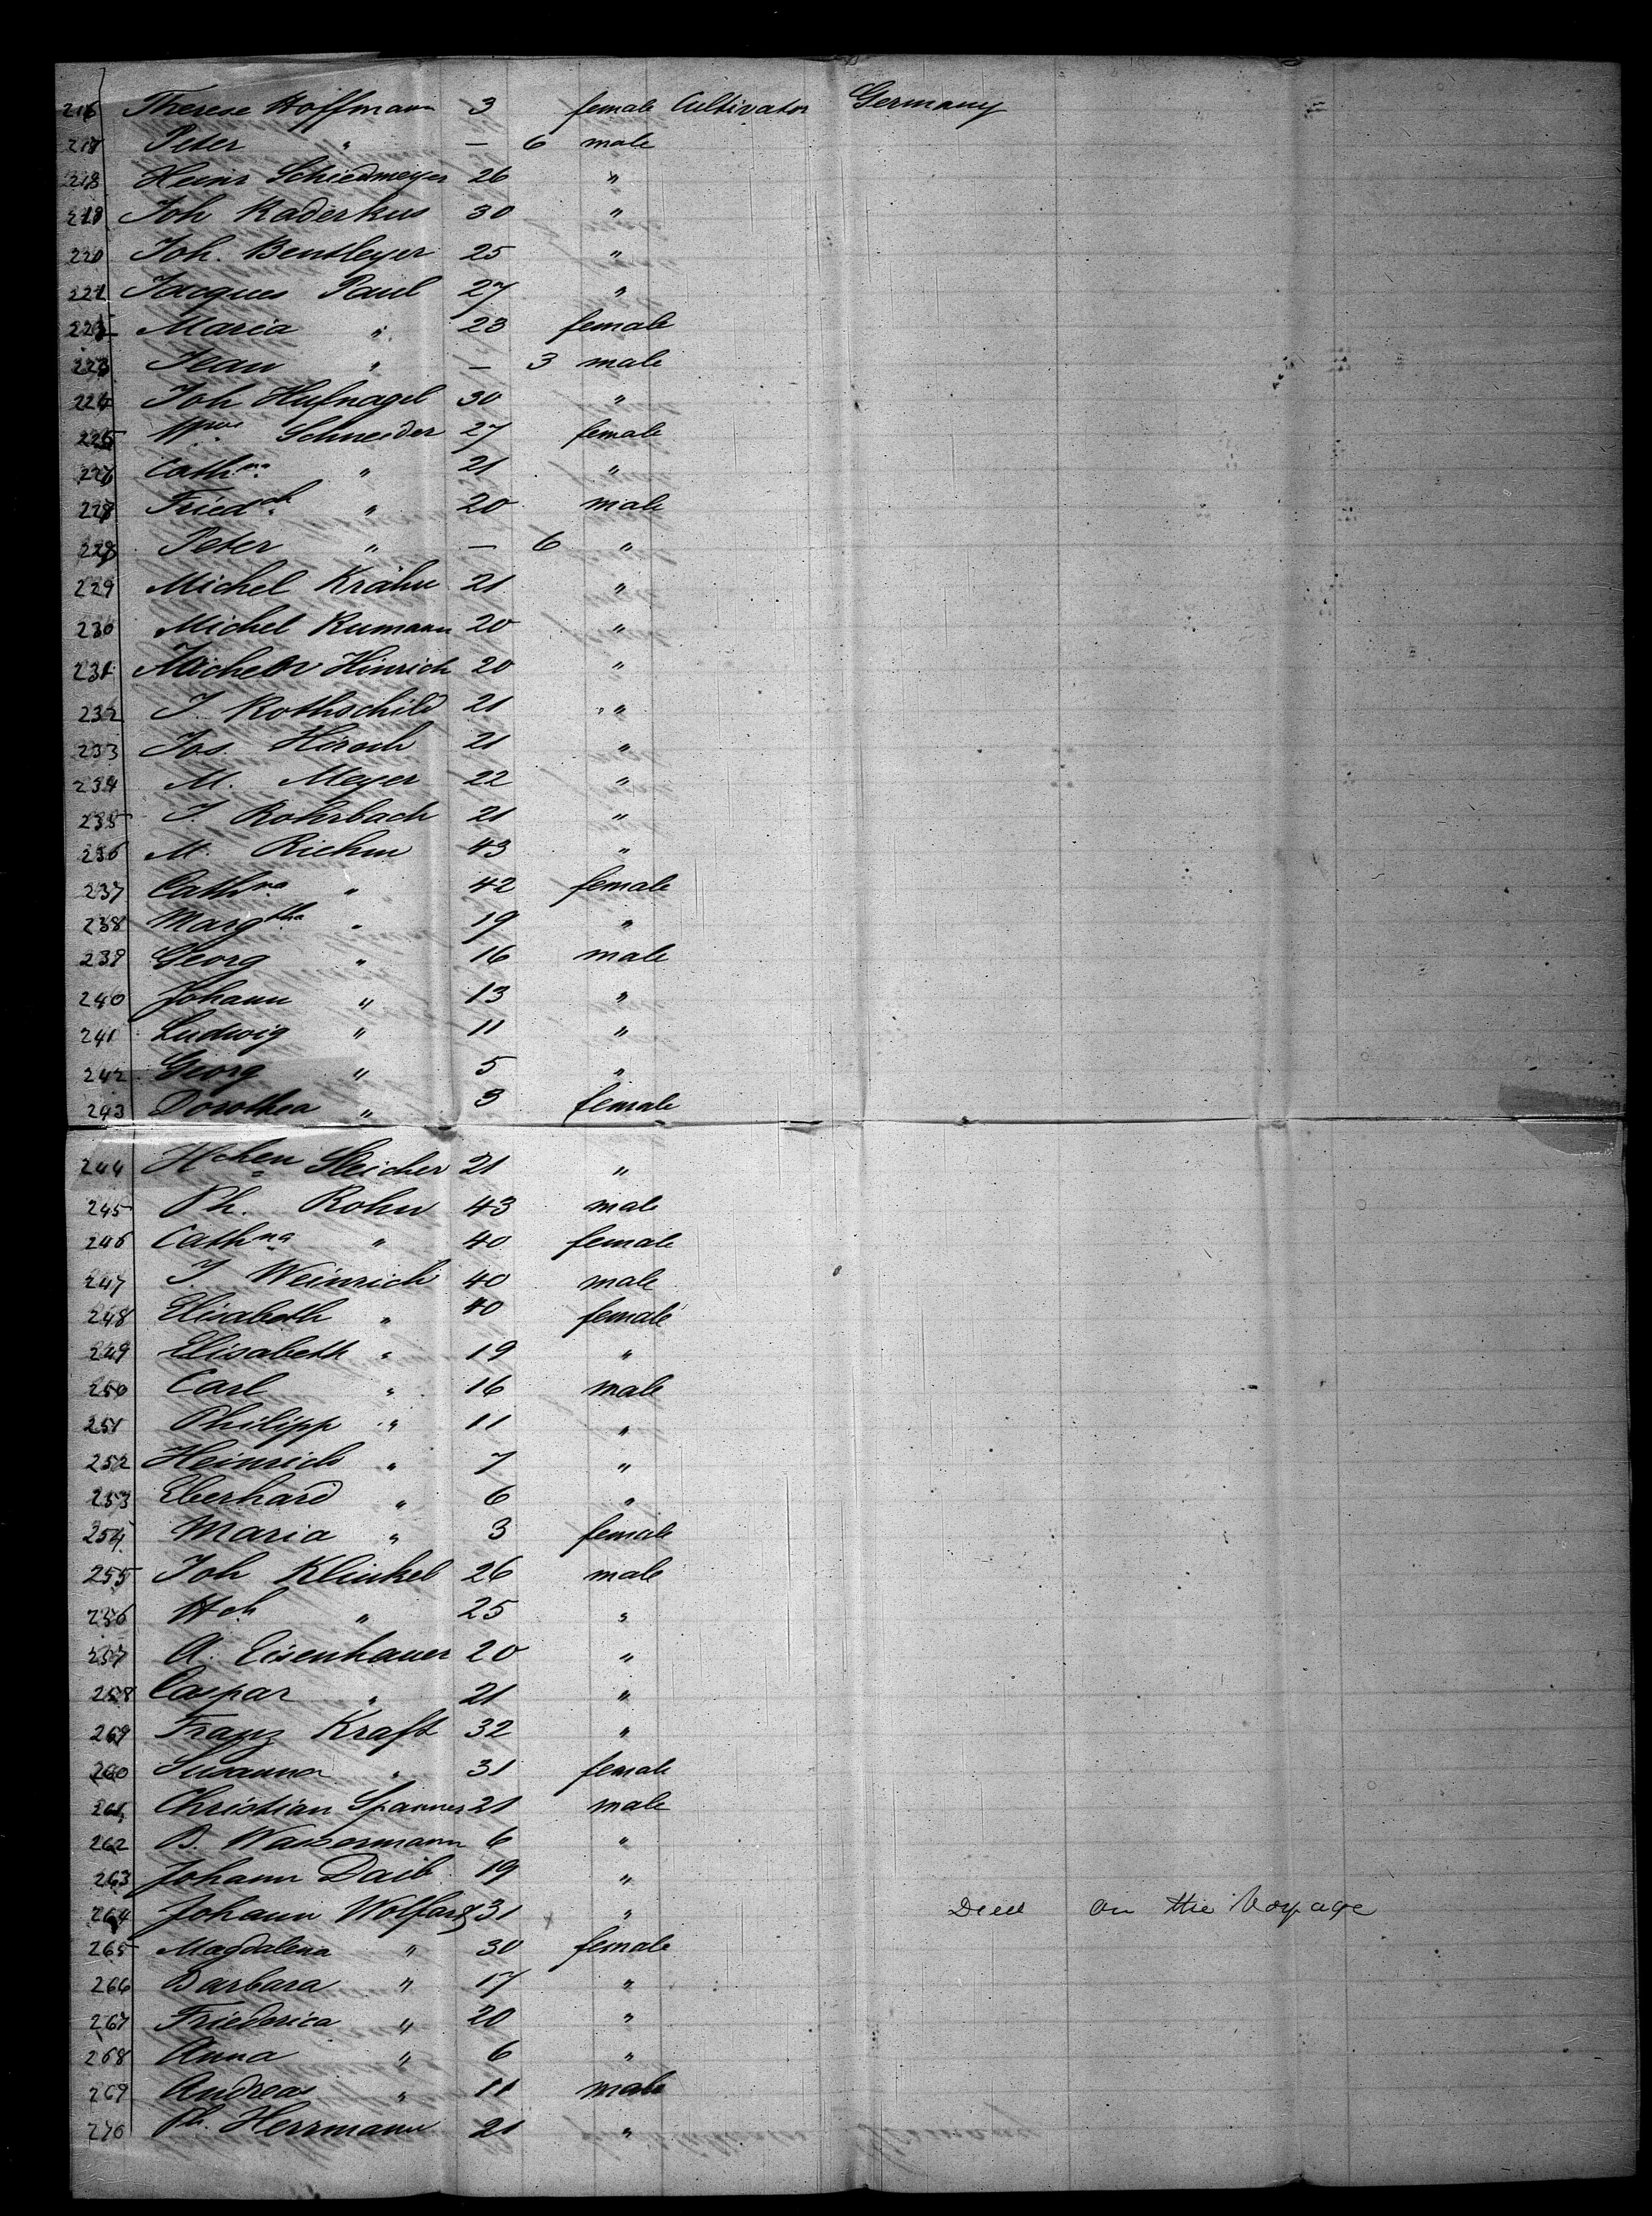 216 Therese Hoffmann 3 female Cultivator Germany
217 Peter " — 6 male
218 Heinr Schiedmeyer 26 "
219 Joh Kaderkus 30 "
220 Joh. Bentleyer 25 "
221 Jacques Paul 27 "
222 Maria " 23 female
223 Jean " — 3 male
224 Joh Hufnagel 30 "
225 Schneider 27 female
226 Cathna " 21 "
227 Friedch " 20 male
228 Peter " — 6 "
229 Michel Krähn 21 "
230 Michel Rumann 20 "
231 Michel Hinrich 20 "
232 J. Rothschild 21 "
233 Jos. Hirsch 21 "
234 M. Meyer 22 "
235 J. Rohrbach 21 "
236 M. Riehm 43 "
237 Cathna " 42 female
238 Margtha " 19 "
239 Georg " 16 male
240 Johann " 13 "
241 Ludwig " 11 "
242 Georg " 5 "
243 Dorothea " 3 female
244 Hchen Sleicher 21 "
245 Ph. Rohn 43 male
246 Cathna " 40 female
247 J Weinrich 40 male
248 Elisabeth " 40 female
249 Elisabeth " 19 "
250 Carl " 16 male
251 Philipp " 11 "
252 Heinrich " 7 "
253 Eberhard " 6 "
254 Maria " 3 female
255 Joh Klinkel 26 male
256 Hch " 25 "
257 A. Eisenhauer 20 "
258 Caspar " 21 "
259 Franz Kraft 32 "
260 Susanna " 31 female
261 Christian Spanner 21 male
262 B. Wassermann 6 "
263 Johann Daib 19 "
264 Johann Wolfarg 31 " Died on the Voyage
265 Magdalena " 30 female
266 Barbara " 17 "
267 Friederica " 20 "
268 Anna " 6 "
269 Andreas " 11 male
270 Ph. Herrmann 21 "